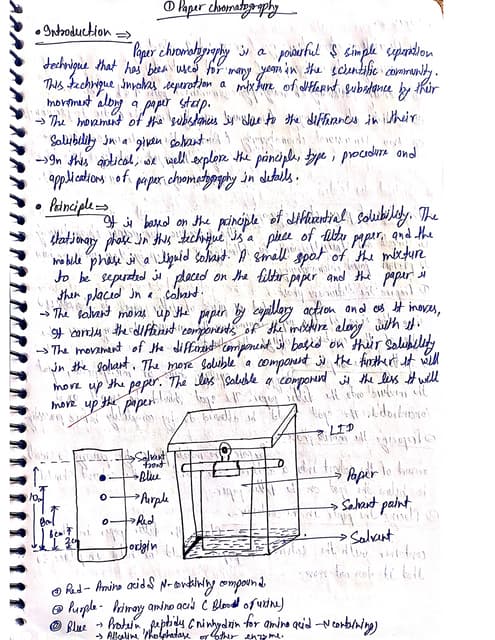 ① Paper chromatography
• Introduction ⇒
Paper chromatography is a powerful & simple seperation
technique that has been used for many years in the scientific community.
This technique involves seperation a mixture of different substance by their
movment along a paper strip.
→ The movement of the substances is due to the differences in their
Solubility in a given solvant
→ In this artical, we well explore the principle, type, procedure and
applications of paper chromatography in details.
• Principle ⇒
It is based on the principle of differential solubility. The
stationary phase in this technique is a piece of filter paper, and the
mobile phase is a liquid solvant. A small spot of the mixture
to be seperated is placed on the filter paper and the paper is
then placed in a solvant.
→ The solvant moves up the paper by capillary action and as it moves,
It carries the different components of the mixture along with it.
→ The movement of the different component is based on their solubility
in the solvant. The more soluble a component is the further it will
move up the paper. The less soluble a component is the less it will
move up the paper
LID
Solvant
front
Blue
Purple
Red
origin
Paper
Solvant paint
Solvant
Red - Amino acid & N-containing compound
Purple - Primary amino acid ( Blood of urine)
Blue → Protein, peptides ( ninhydrin for amino acid - N containing)
→ Alkaline phosphatase or other enzyme.